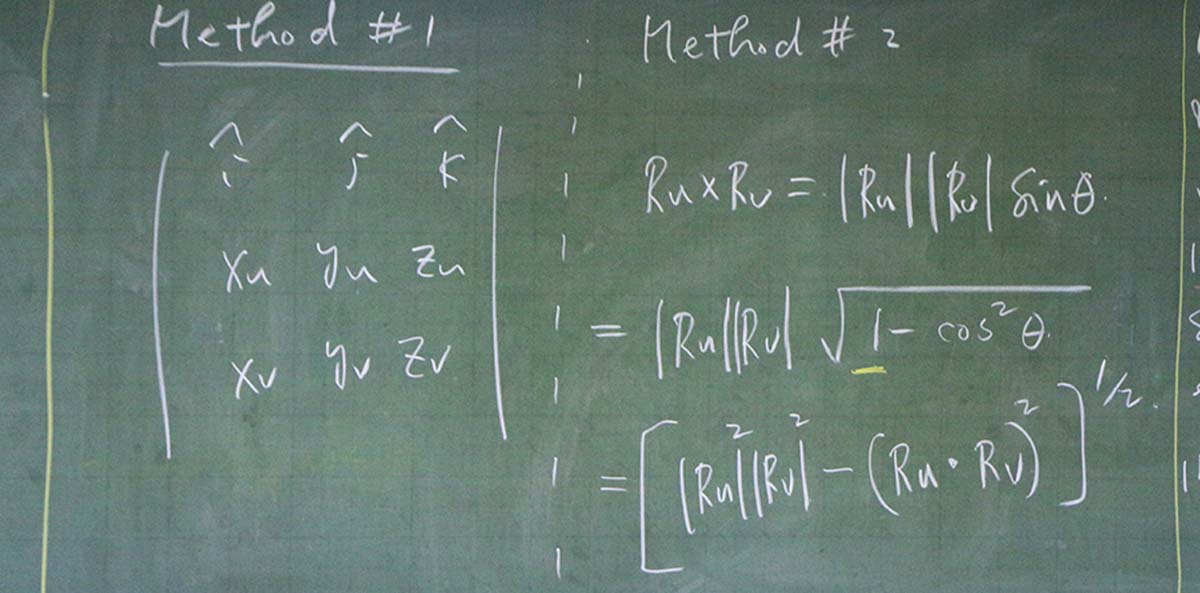 Method #1
î ĵ k̂
xu yu zu
xv yv zv
Method # 2
Ru×Rv = |Ru||Rv| sinθ.
= |Ru||Rv| √1 - cos²θ.
= [|Ru|²|Rv|² - (Ru · Rv)²]^1/2.